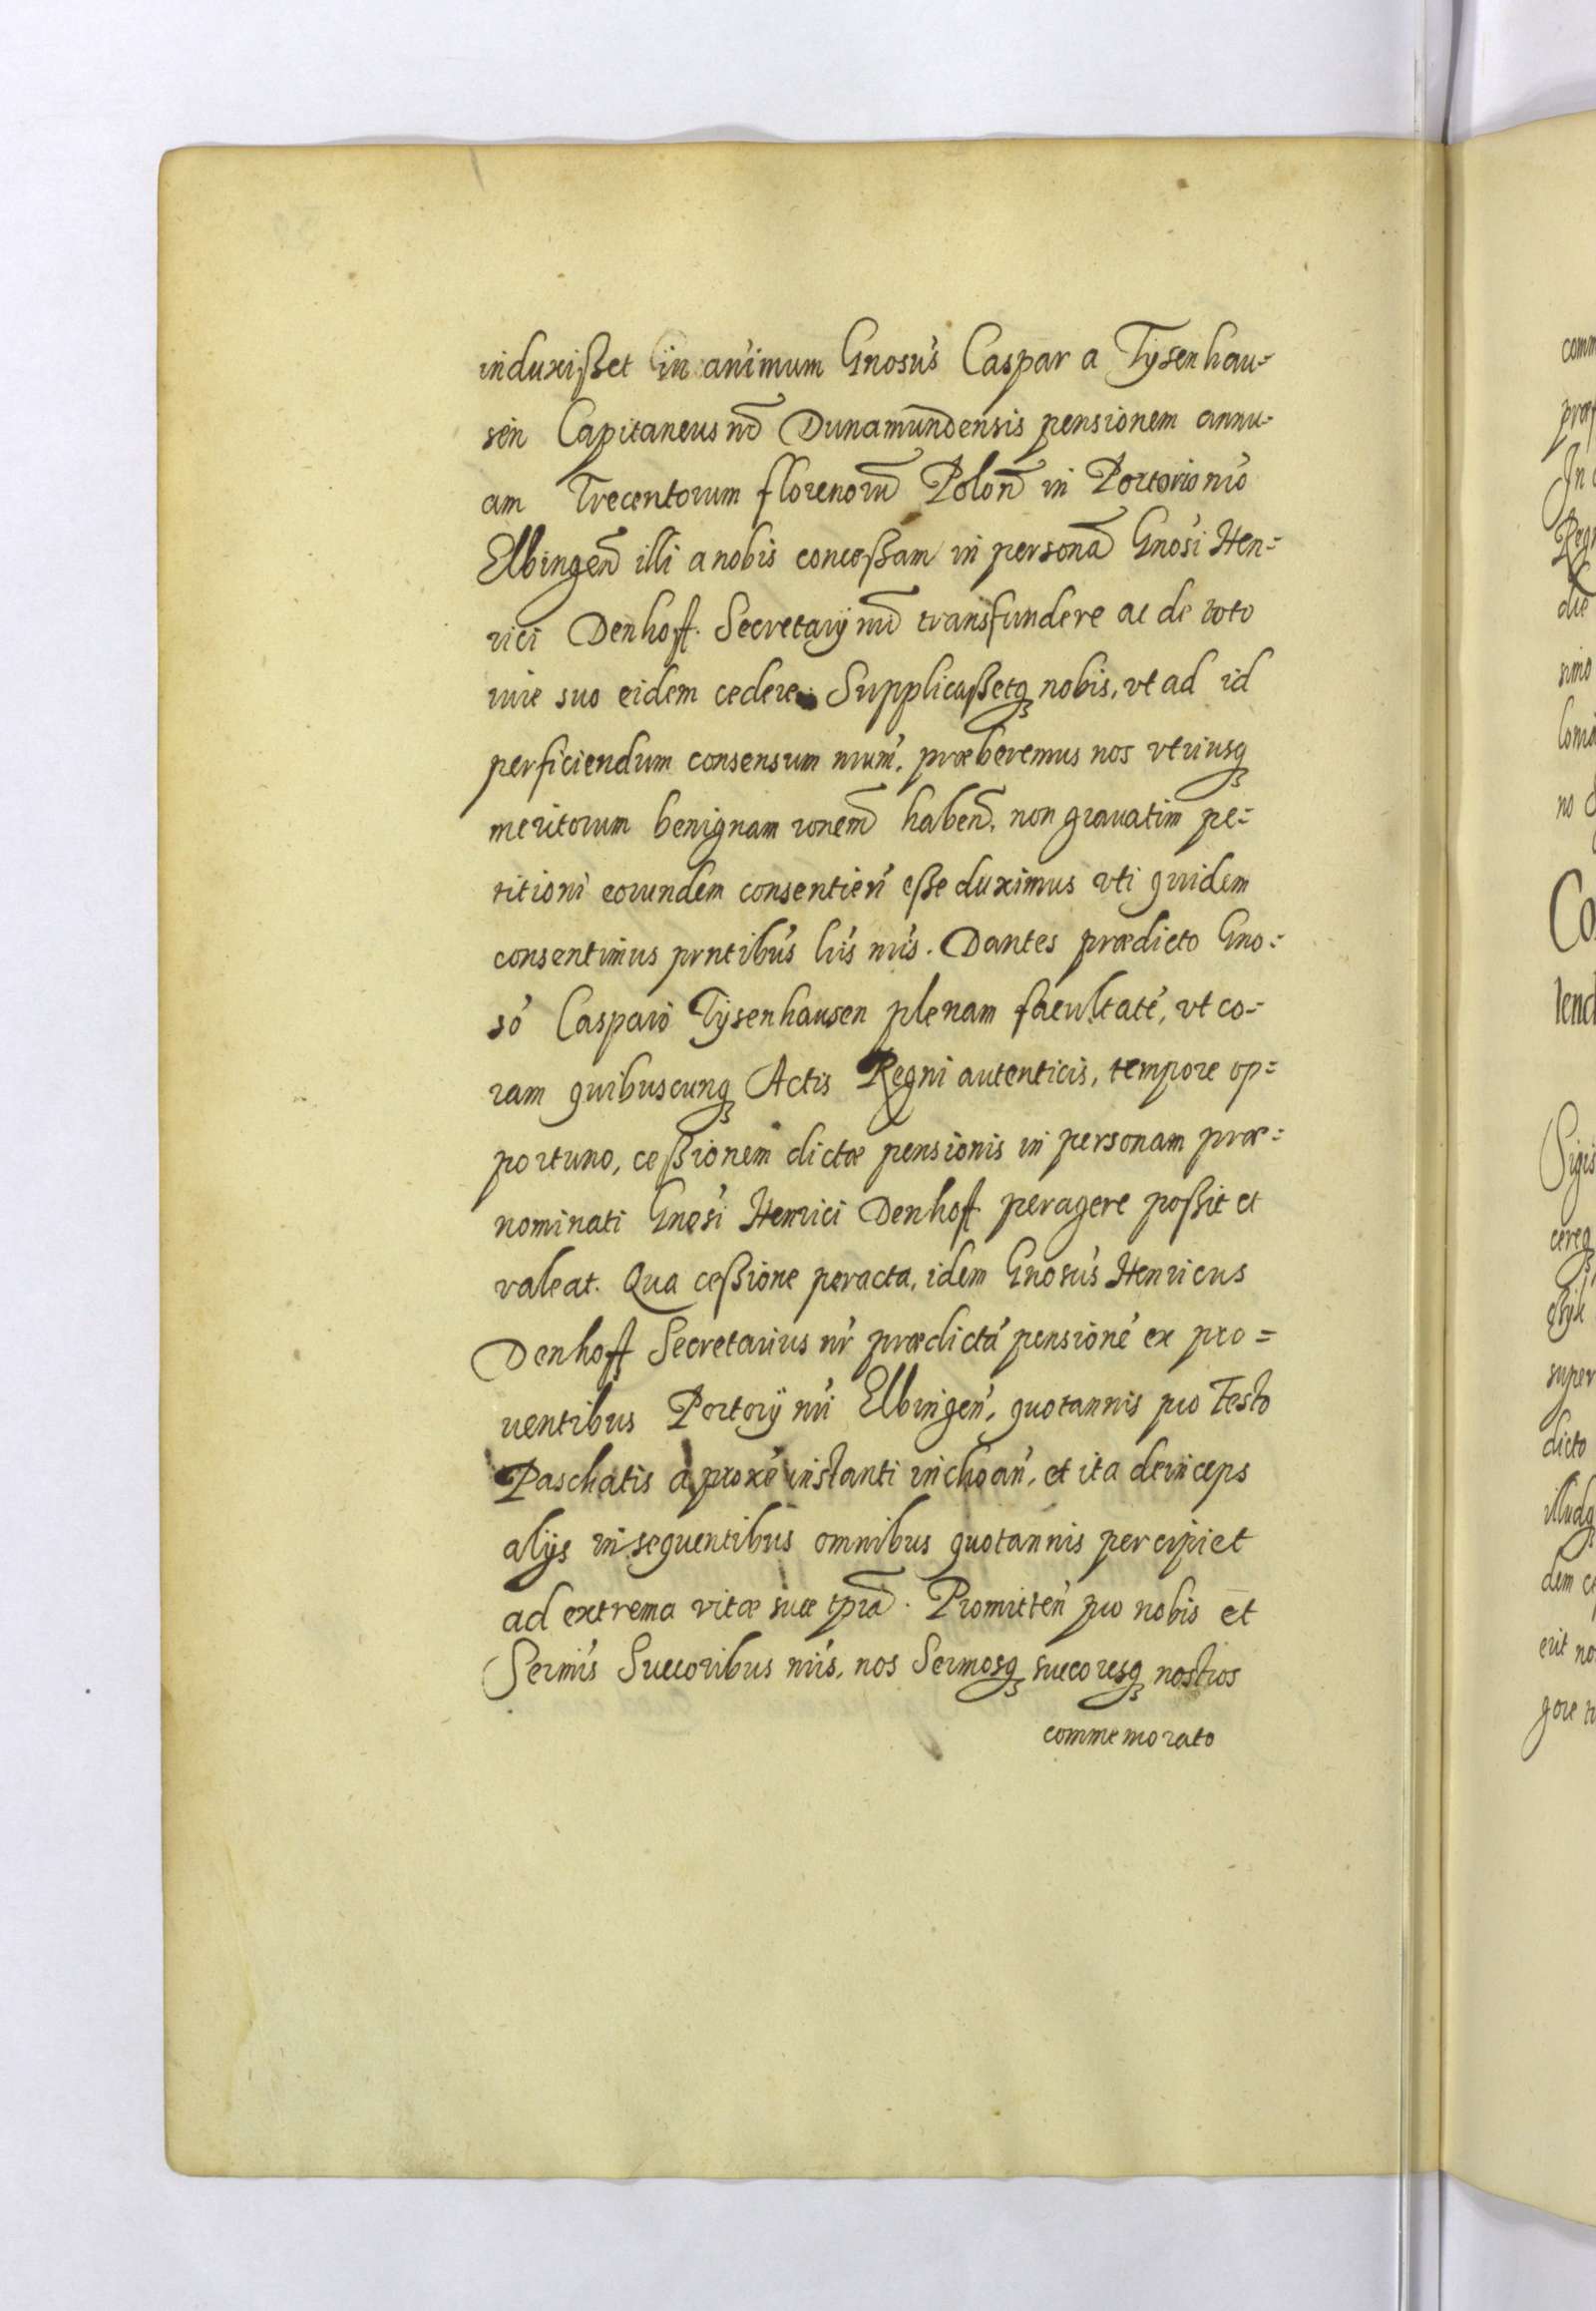 induxißet in animum Gnosus Caspar a Tysenhau-
sen Capitaneus nr Dunamundensis pensionem annu-
am Trecentorum florenorū Polon in Portorio nro
Elbingen illi a nobis conceßam in personā Gnosi Hen-
rici Denhoff. Secretarij nri transfundere ac de toto
iure suo eidem cedere. Supplicaßetq nobis, vt ad id
perficiendum consensum nrum. præberemus nos vtriusq
meritorum benignam ronem haben. non grauatim pe-
titioni eorundem consentien eße duximus vti quidem
consentimus prntibus lris nris. Dantes prædicto Gno-
so Casparo Tysenhausen plenam facultatē, vt co-
ram quibuscunq Actis Regni autenticis, tempore op-
portuno, ceßionem dictæ pensionis in personam præ-
nominati Gnosi Henrici Denhoff peragere poßit et
valeat. Qua ceßione peracta, idem Gnosus Henricus
Denhoff Secretarius nr prædictā pensionē ex pro-
uentibus Portorij nri Elbingen, quotannis pro Festo
Paschatis a proxe instanti inchoan, et ita deinceps
alijs insequentibus omnibus quotannis percipiet
ad extrema vitæ suæ tpra. Promitten pro nobis et
Sermis Succoribus nris, nos Sermosq succoresq nostros
commemorato